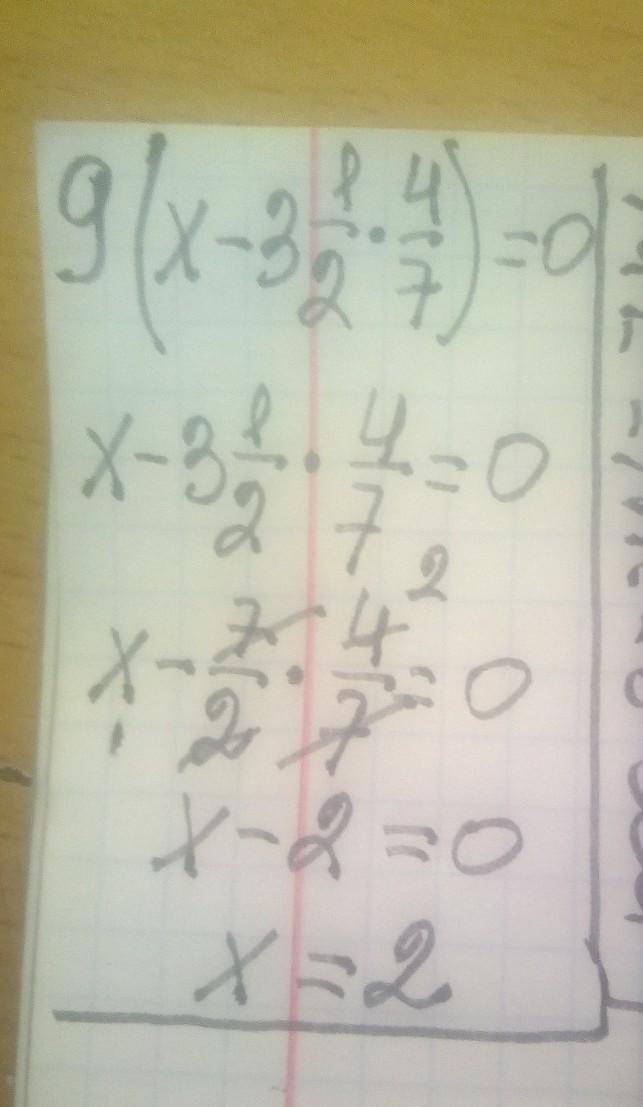 9(x-3 1/2 · 4/7)=0
x-3 1/2 · 4/7=0
x-7/2 · 4/7=0 2
x-2=0
x=2